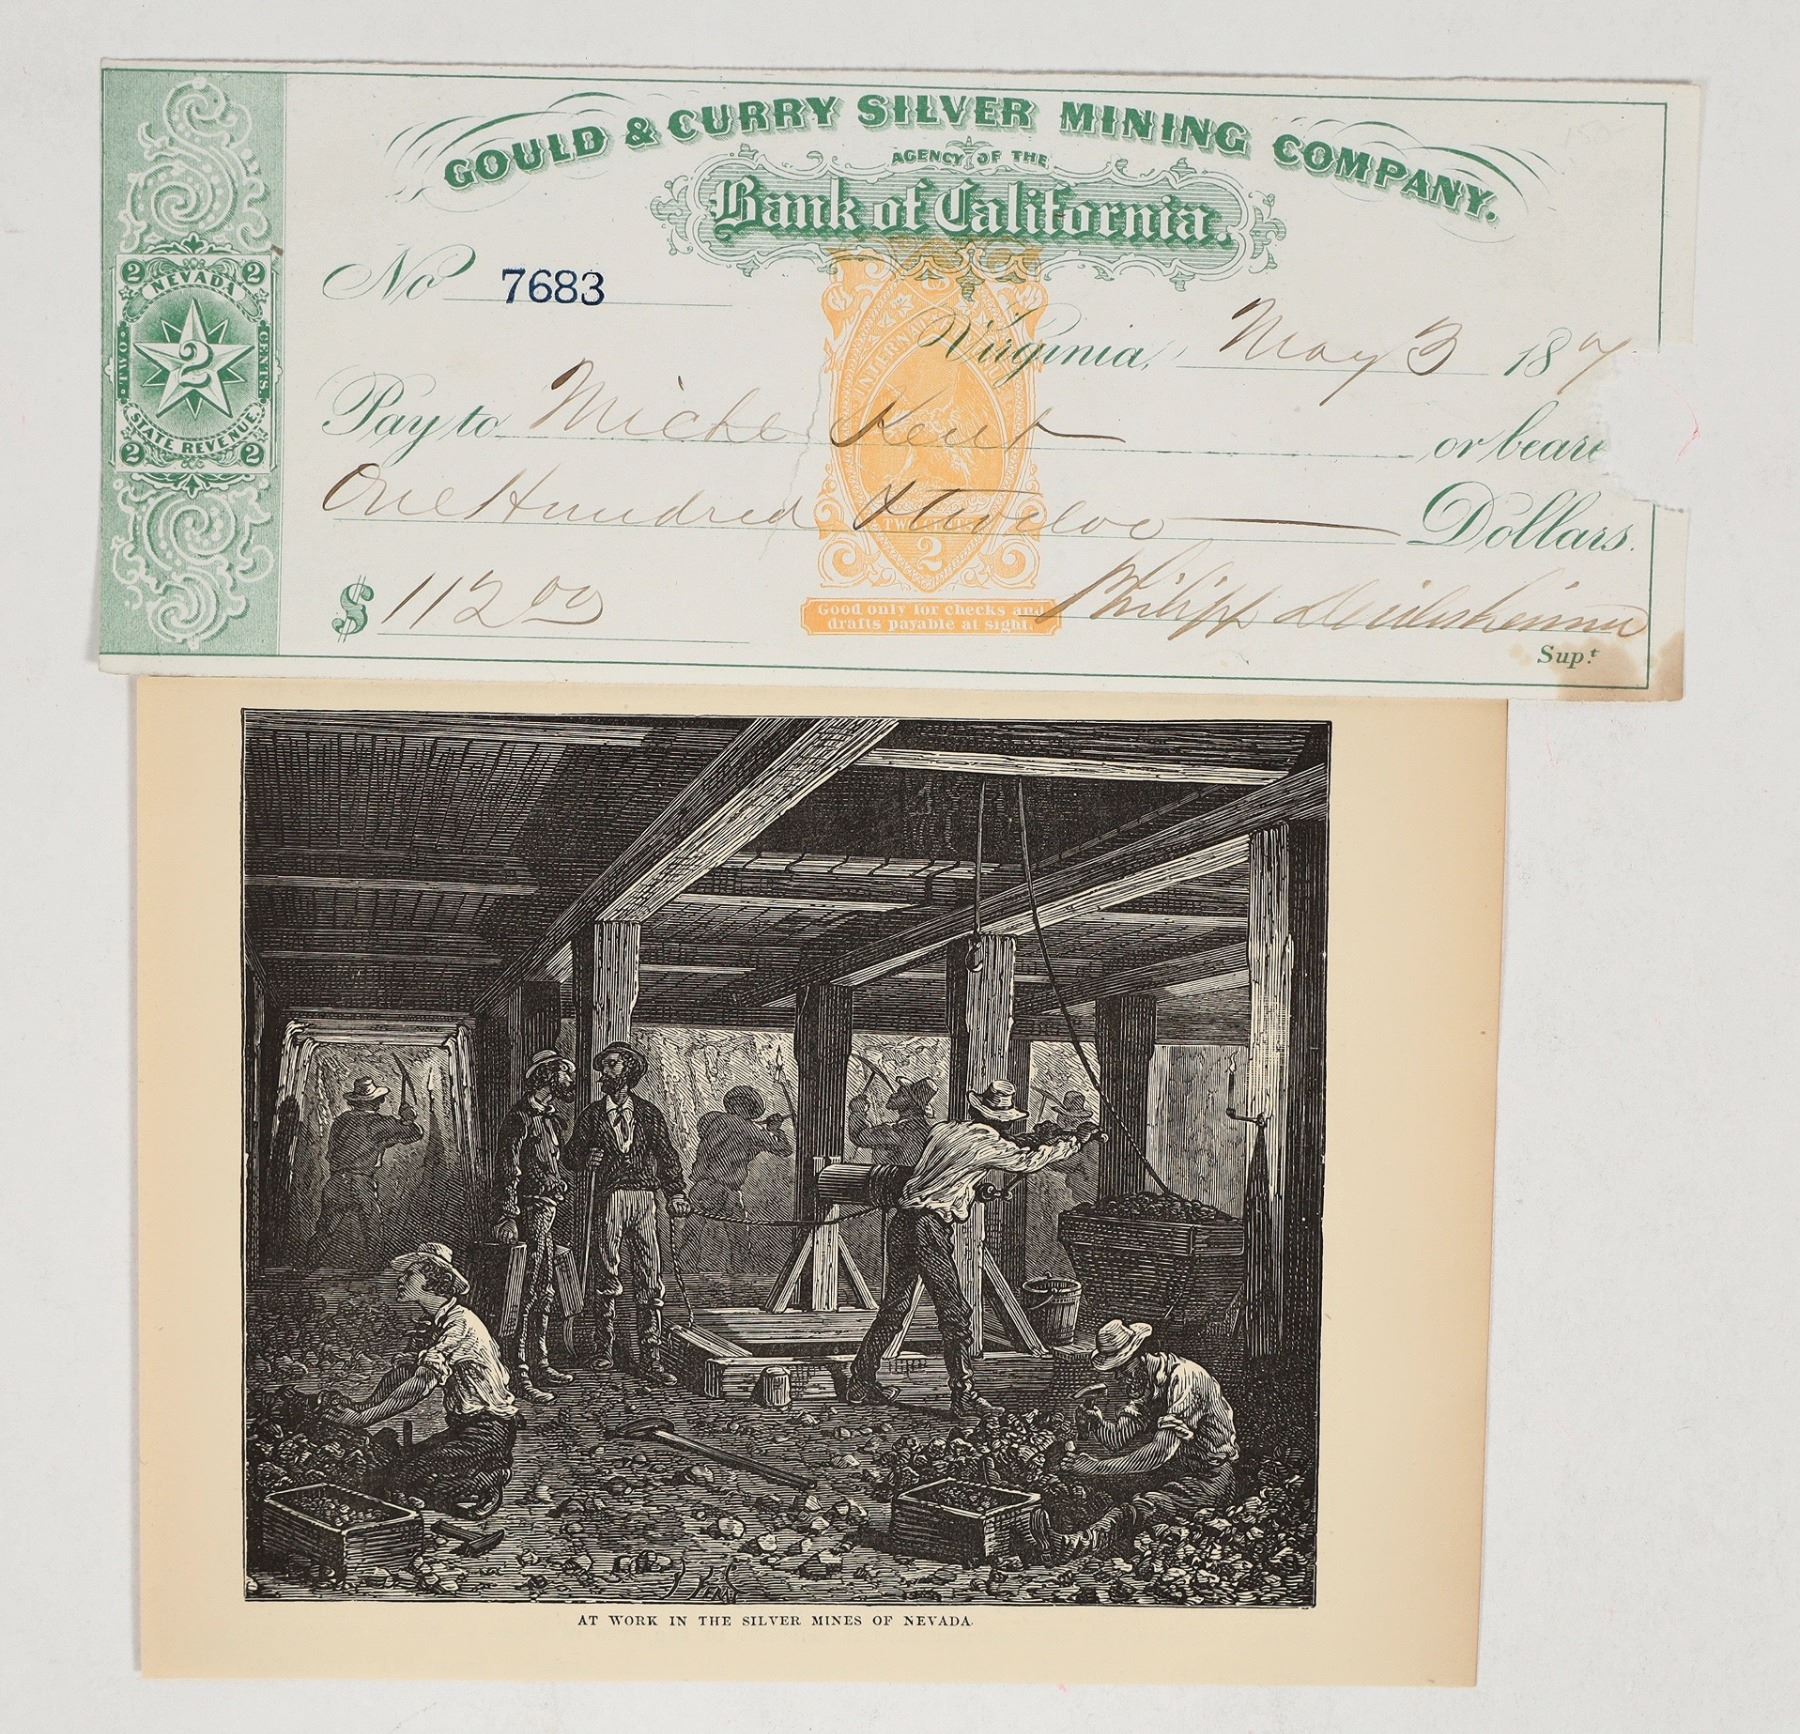 GOULD & CURRY SILVER MINING COMPANY.
AGENCY OF THE
Bank of California.
No 7683
Virginia, May 3 187
Pay to Miche Kent or beare
One Hundred & twelve 00 Dollars.
$ 112 00
Philipp Deidesheimer
Supt
2 2
NEVADA
TWO 2 CENTS.
STATE REVENUE
2 2
INTERNAL
TWO CENTS
2
Good only for checks and
drafts payable at sight.
AT WORK IN THE SILVER MINES OF NEVADA.